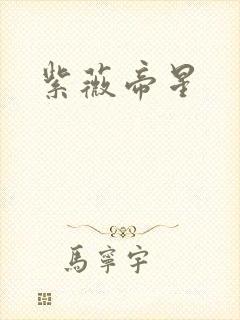 紫薇帝星
馬寧宇